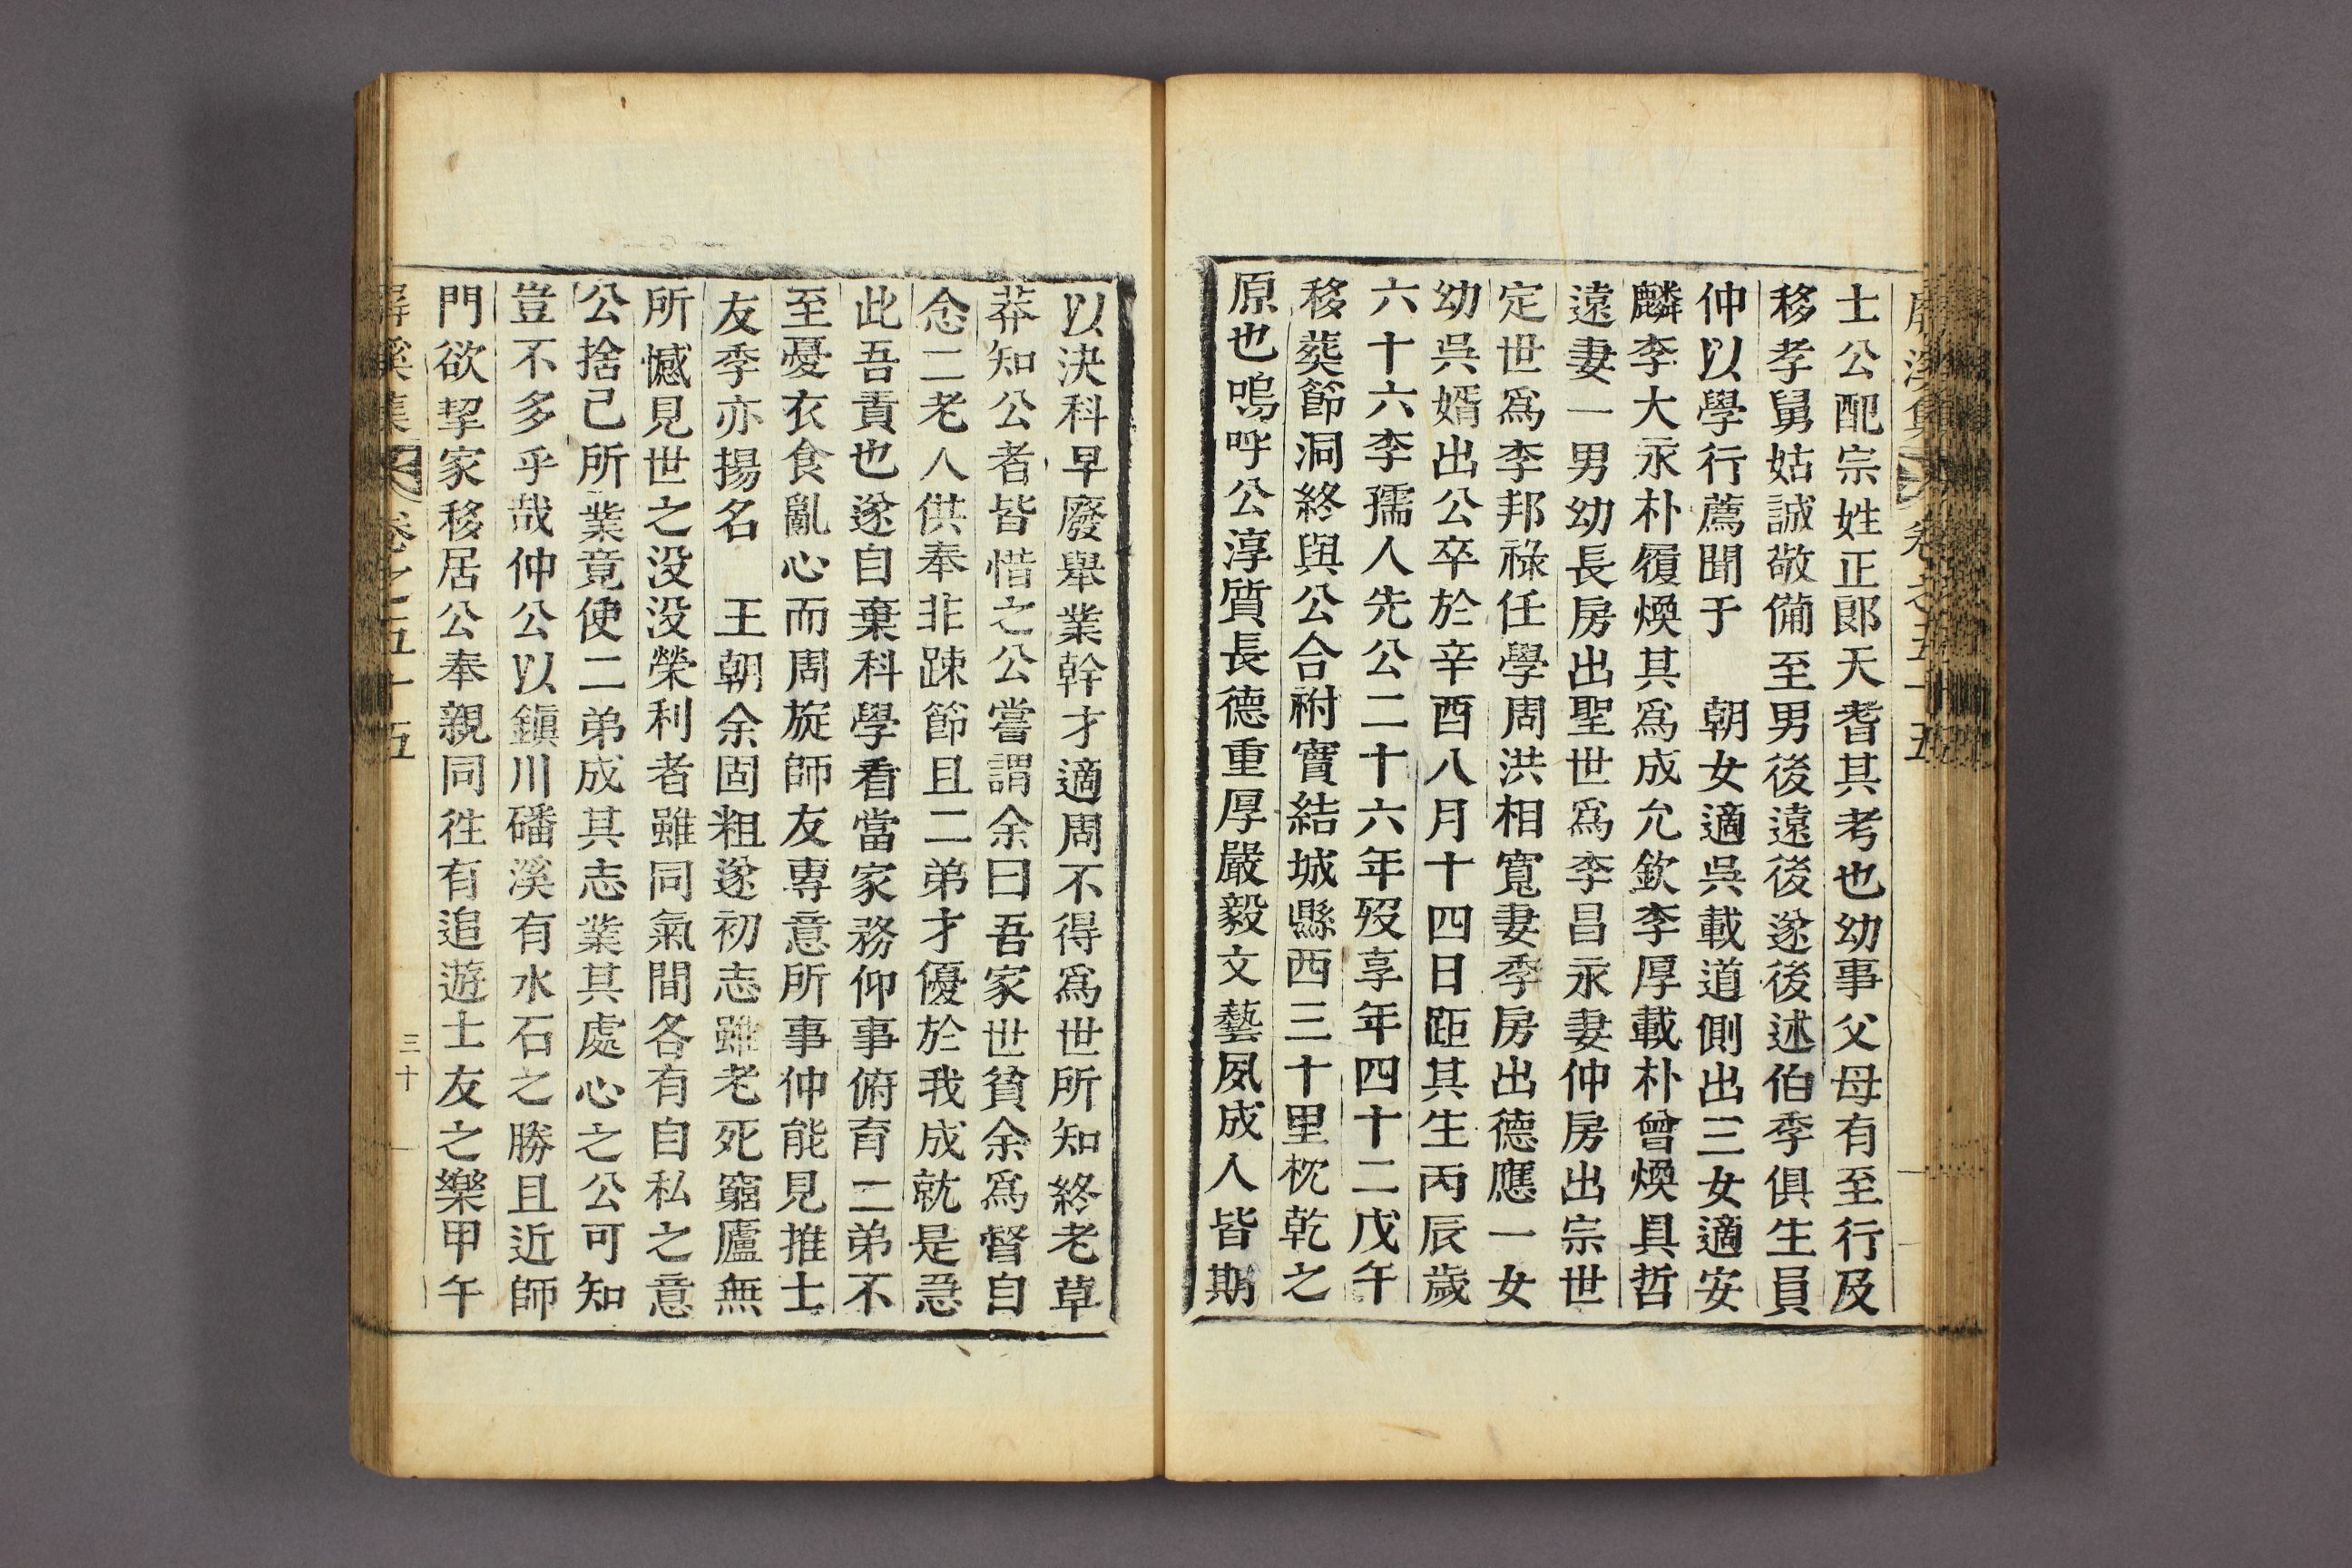 屛溪集 卷之五十五
士公配宗姓正郞天耆其考也幼事父母有至行及
移孝舅姑誠敬備至男後遠後遂後述伯季俱生員
仲以學行薦聞于 朝女適吳載道側出三女適安
麟李大永朴履煥其爲成允欽李厚載朴曾煥具哲
遠妻一男幼長房出聖世爲李昌永妻仲房出宗世
定世爲李邦祿任學周洪相寬妻季房出德應一女
幼吳婿出公卒於辛酉八月十四日距其生丙辰歲
六十六李孺人先公二十六年歿享年四十二戊午
移葬節洞終與公合祔實結城縣西三十里枕乾之
原也嗚呼公淳質長德重厚嚴毅文藝夙成人皆期
以決科早廢擧業幹才適周不得爲世所知終老草
莽知公者皆惜之公嘗謂余曰吾家世貧余爲督自
念二老人供奉非踈節且二弟才優於我成就是急
此吾責也遂自棄科學看當家務仰事俯育二弟不
至憂衣食亂心而周旋師友專意所事仲能見推士
友季亦揚名 王朝余固粗遂初志雖老死窮廬無
所憾見世之沒沒榮利者雖同氣間各有自私之意
公捨己所業竟使二弟成其志業其處心之公可知
豈不多乎哉仲公以鎭川磻溪有水石之勝且近師
門欲挈家移居公奉親同徃有追遊士友之樂甲午
屛溪集 卷之五十五 三十